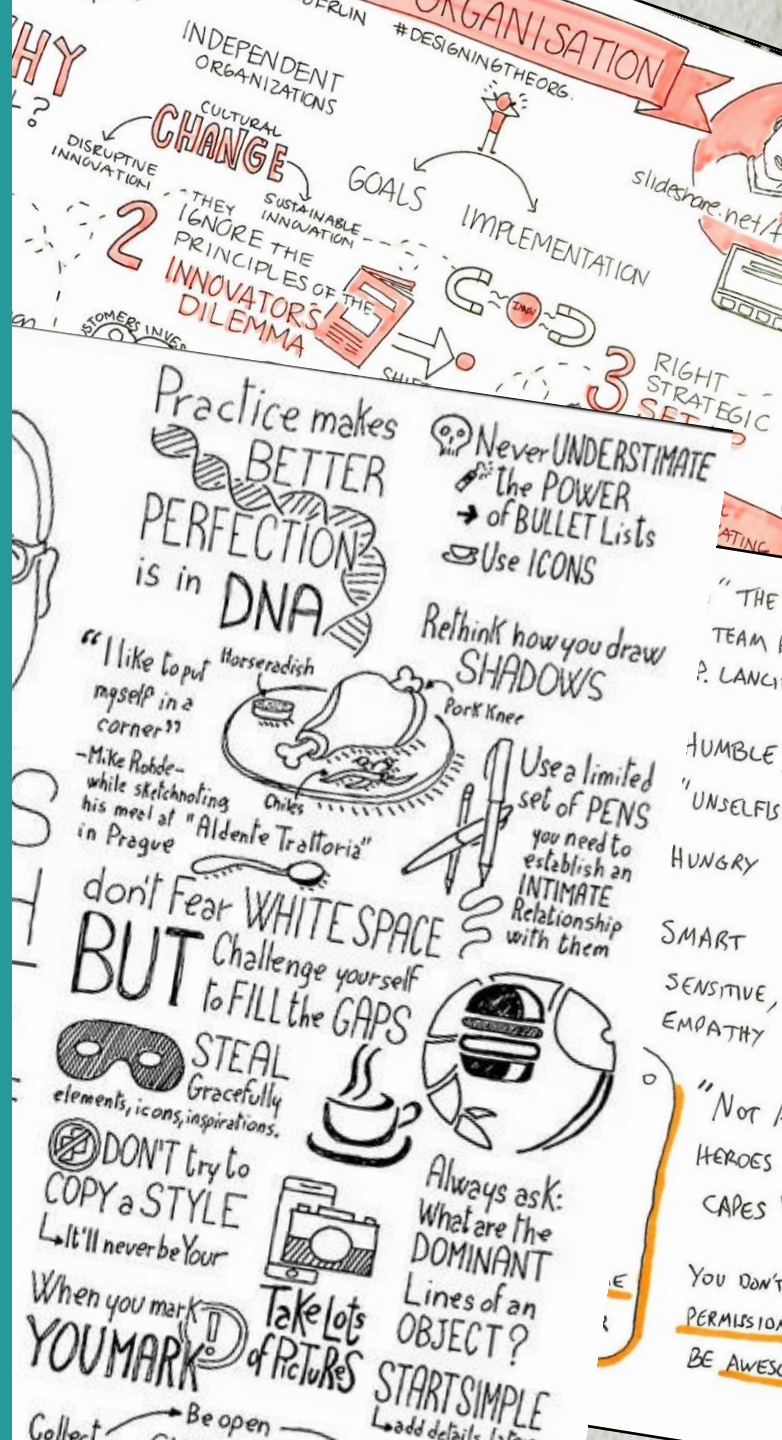 BERLIN
ORGANISATION
#DESIGNINGTHEORG.
INDEPENDENT
ORGANIZATIONS
CULTURAL
CHANGE
DISRUPTIVE
INNOVATION
SUSTAINABLE
INNOVATION
GOALS
IMPLEMENTATION
slideshare.net/
2
THEY
IGNORE THE
PRINCIPLES OF THE
INNOVATOR'S
DILEMMA
3
RIGHT
STRATEGIC
Practice makes
BETTER
PERFECTION
is in DNA
Never UNDERSTIMATE
the POWER
of BULLET Lists
Use ICONS
Rethink how you draw
SHADOWS
“I like to put
myself in a
corner”
-Mike Rohde-
while sketchnoting
his meal at "Aldente Trattoria"
in Prague
Horseradish
Pork Knee
Chiles
Use a limited
set of PENS
you need to
establish an
INTIMATE
Relationship
with them
don't Fear WHITE SPACE
BUT Challenge yourself
to FILL the GAPS
STEAL
Gracefully
elements, icons, inspirations.
DON'T try to
COPY a STYLE
It'll never be Your
When you mark
YOU MARK
Take Lots
of PicTuReS
Always ask:
What are the
DOMINANT
Lines of an
OBJECT?
START SIMPLE
add details later
Collect
Be open
" THE
TEAM
P.
HUMBLE
"UNSELFIS
HUNGRY
SMART
SENSITIVE,
EMPATHY
"NOT
HEROES
CAPES
YOU DON'T
PERMISSION
BE AWESO